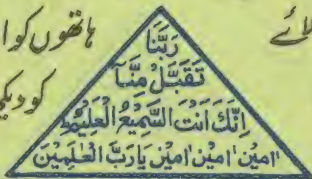 لائے
ہاتھوں کو ا
کو دیکھ
رَبَّنَا
تَقَبَّلْ مِنَّا
اِنَّكَ اَنْتَ السَّمِیْعُ الْعَلِیْمُ
اٰمِیْن اٰمِیْن اٰمِیْن یَارَبَّ الْعٰلَمِیْنَ